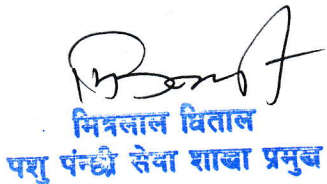 मित्रलाल घिताल
पशु पंन्छी सेवा शाखा प्रमुख